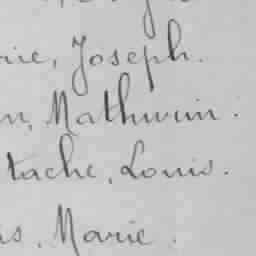 rie, Joseph.
n, Mathurin.
tache, Louis.
is. Marie.